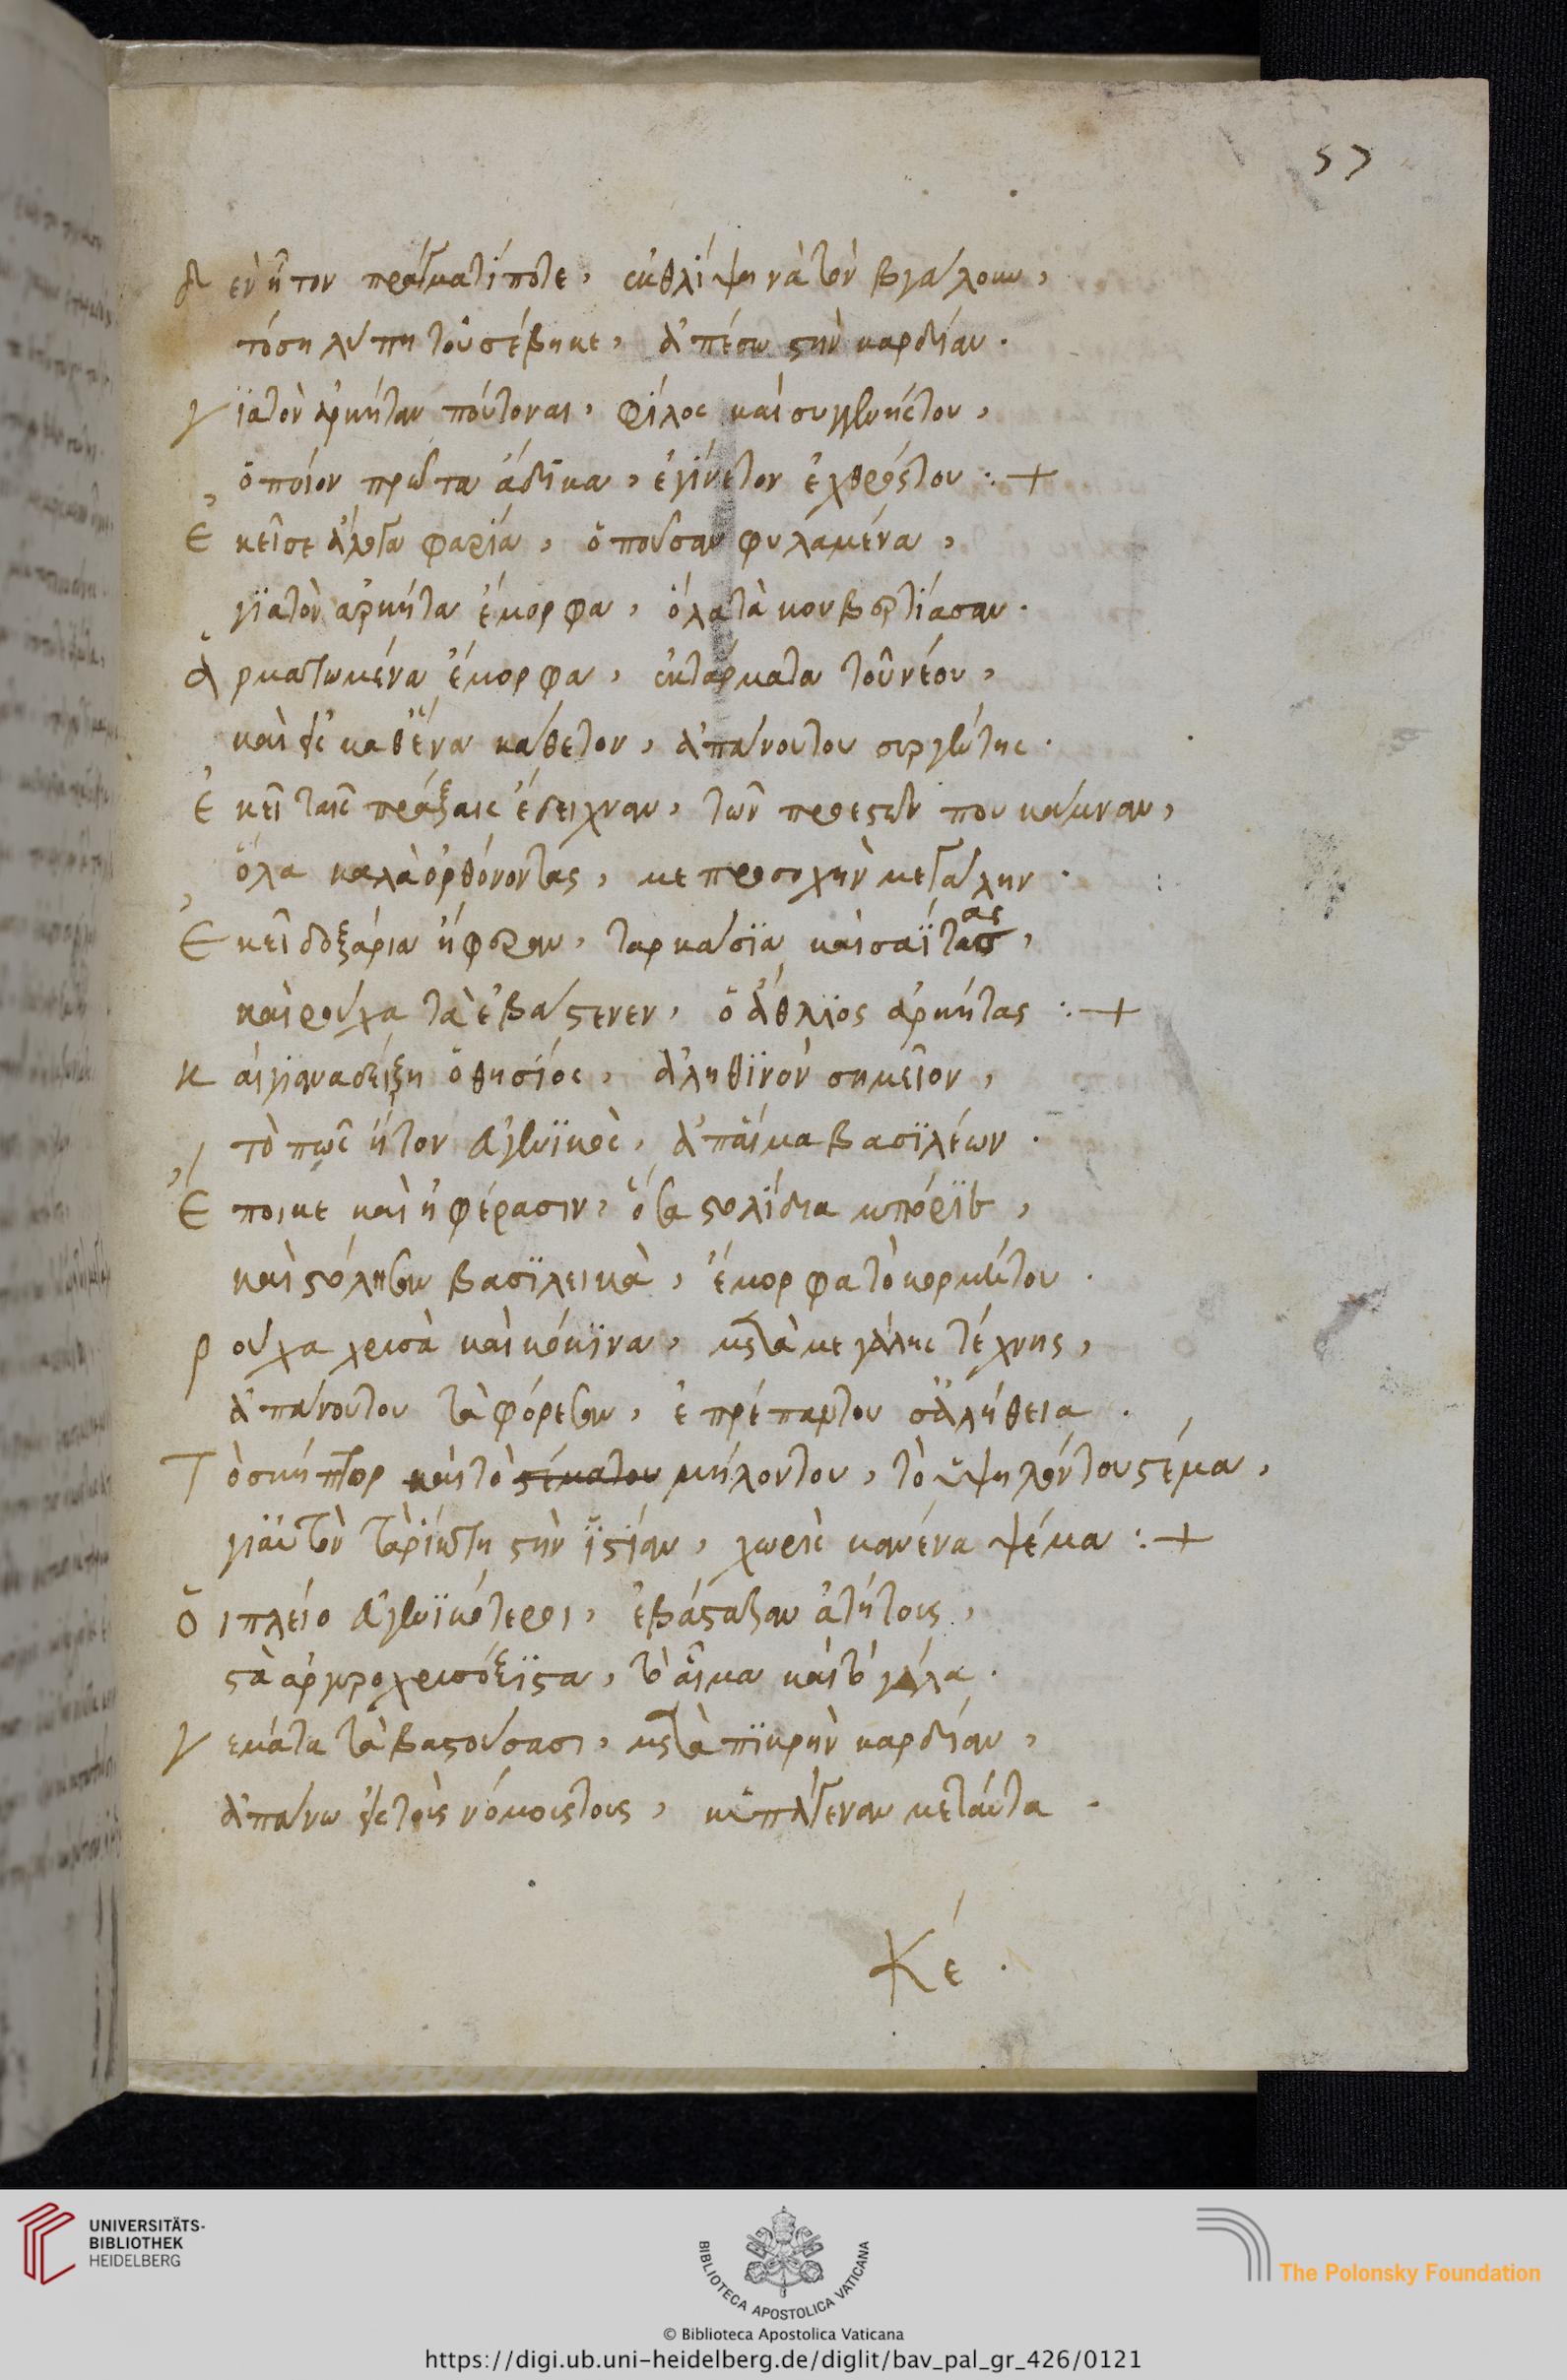 57
Δ ὲν ἦτον πρᾶγμα τίποτε, ἐκ θλίψη νὰ τὸν βγάλουν,
τόση λύπη τοῦ σέβηκε, ἀπέσω στὴν καρδίαν.
Γ ϊατὸν ἀρκήταν πούτοναι, φίλος καὶ συγγενήςτου,
ὁποίον πρῶτα ἄδικα, ἐγίνετον ἐχθρόςτου :+
Ἐ κεῖσε ἄλογα φαρία, ὁποῦσαν φυλαμένα,
γϊατὸν ἀρκήτα ἔμορφα, ὅλα τὰ κουβερτιάσαν.
Ἀ ρματωμένα ἔμορφα, ἐκ τάρματα τοῦ νέου,
καὶ εἰς καθένα κάθετον, ἀπάνουτου σιργέντης.
Ἐ κεῖ ταῖς πράξαις ἔδειχναν, τῶν προεστῶν που κάμναν,
ὅλα καλὰ ὀρθόνοντας, με προσοχὴν μεγάλην.
Ἐ κεῖ δοξάρια ἤφεραν, ταρκάσϊα καὶ σαΐτας,
καὶ ροῦχα τὰ ἐβάστενεν, ὁ ἄθλϊος ἀρκήτας :+
Κ αι γιανα δείξη ὁ θησίος, ἀληθϊνὸν σημεῖον,
τὸ πῶς ἦτον εὐγενϊκὸς, ἀπαίμα βασϊλέων.
Ἐ ποικε καὶ ἠφέρασιν,
καὶ βασϊλεικὰ, ἔμορφα τὸ κορμίτου.
Ρ οῦχα χρισὰ καὶ κόκϊνα, μετὰ μεγάλης τέχνης,
ἀπάνουτου τὰ φόρεσαν, ἐπρέπαντου σἀλήθεια.
Τ ὸ σκήπτορ καὶ τὸ στέματου μήλοντου, τὸ ὑψηλόντου στέμα,
γϊαυτὸν τὰρίκτη στὴν ἱστίαν, χωρὶς κανένα ψέμα :+
Ὁ ι πλείο εὐγενϊκότεροι, ἐβάσταξαν ἀτήτους,
στὰ ἀργυροχρισόξϊστα, τὸ αἷμα καὶ τὸ γάλα.
Γ εμάτα τὰ βαστούσασι, μετὰ πϊκρὴν καρδίαν,
ἀπάνω εἰς τοὺς νόμουςτους, κιὑπάγεναν μετάυτα.
Κέ.
UNIVERSITÄTS-
BIBLIOTHEK
HEIDELBERG
BIBLIOTECA APOSTOLICA VATICANA
The Polonsky Foundation
© Biblioteca Apostolica Vaticana
https://digi.ub.uni-heidelberg.de/diglit/bav_pal_gr_426/0121